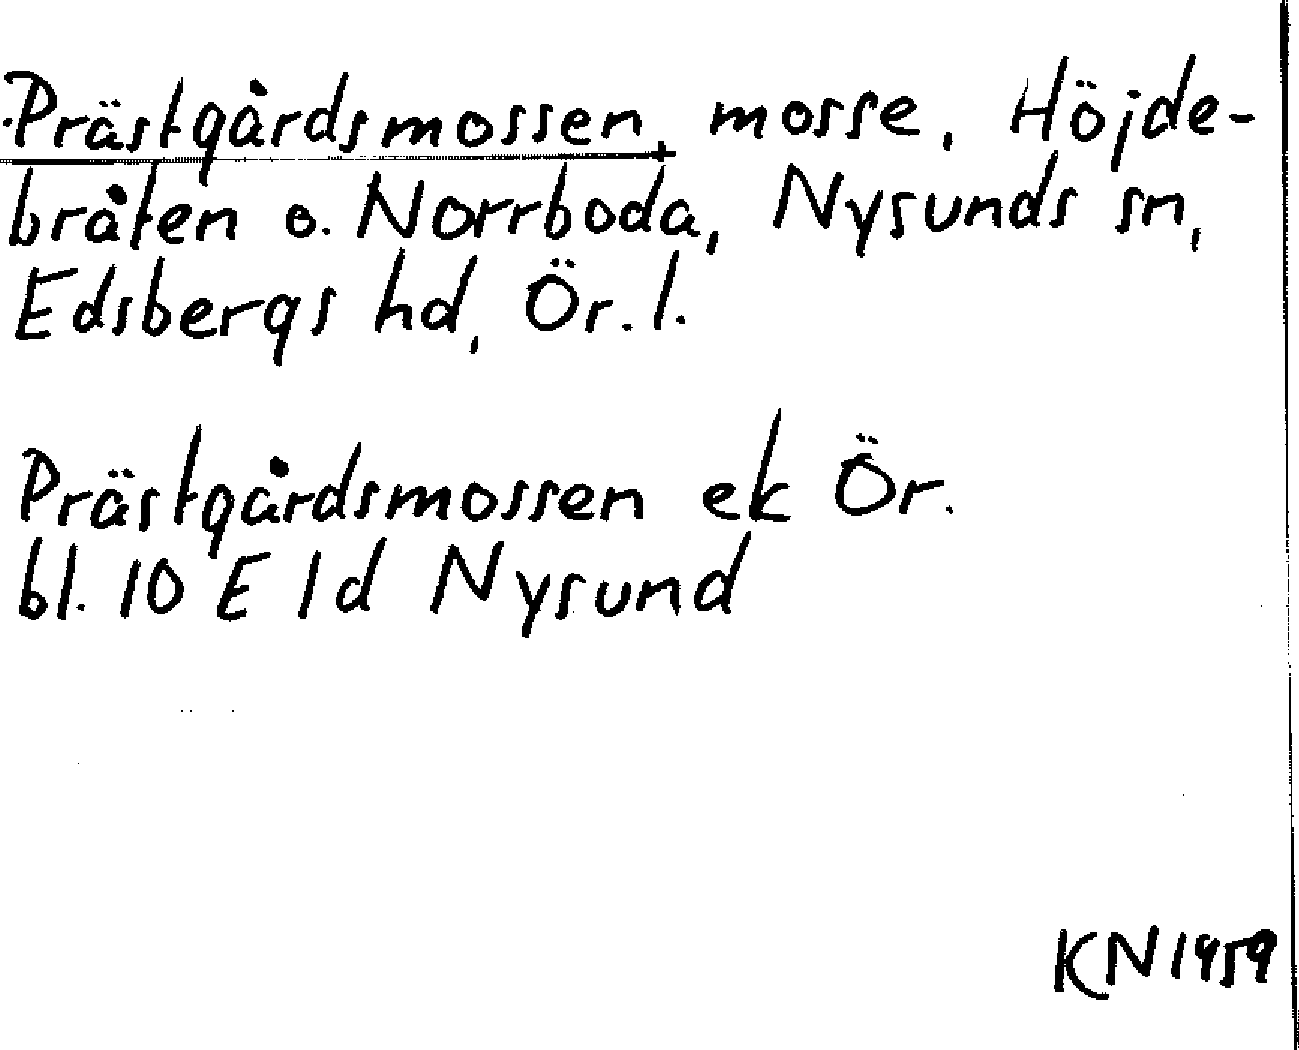 Prästgårdsmossen, mosse, Höjde-
bråten o. Norrboda, Nysunds sn,
Edsbergs hd, Ör. l.
Prästgårdsmossen ek Ör.
bl. 10 E 1d Nysund
KN 1959